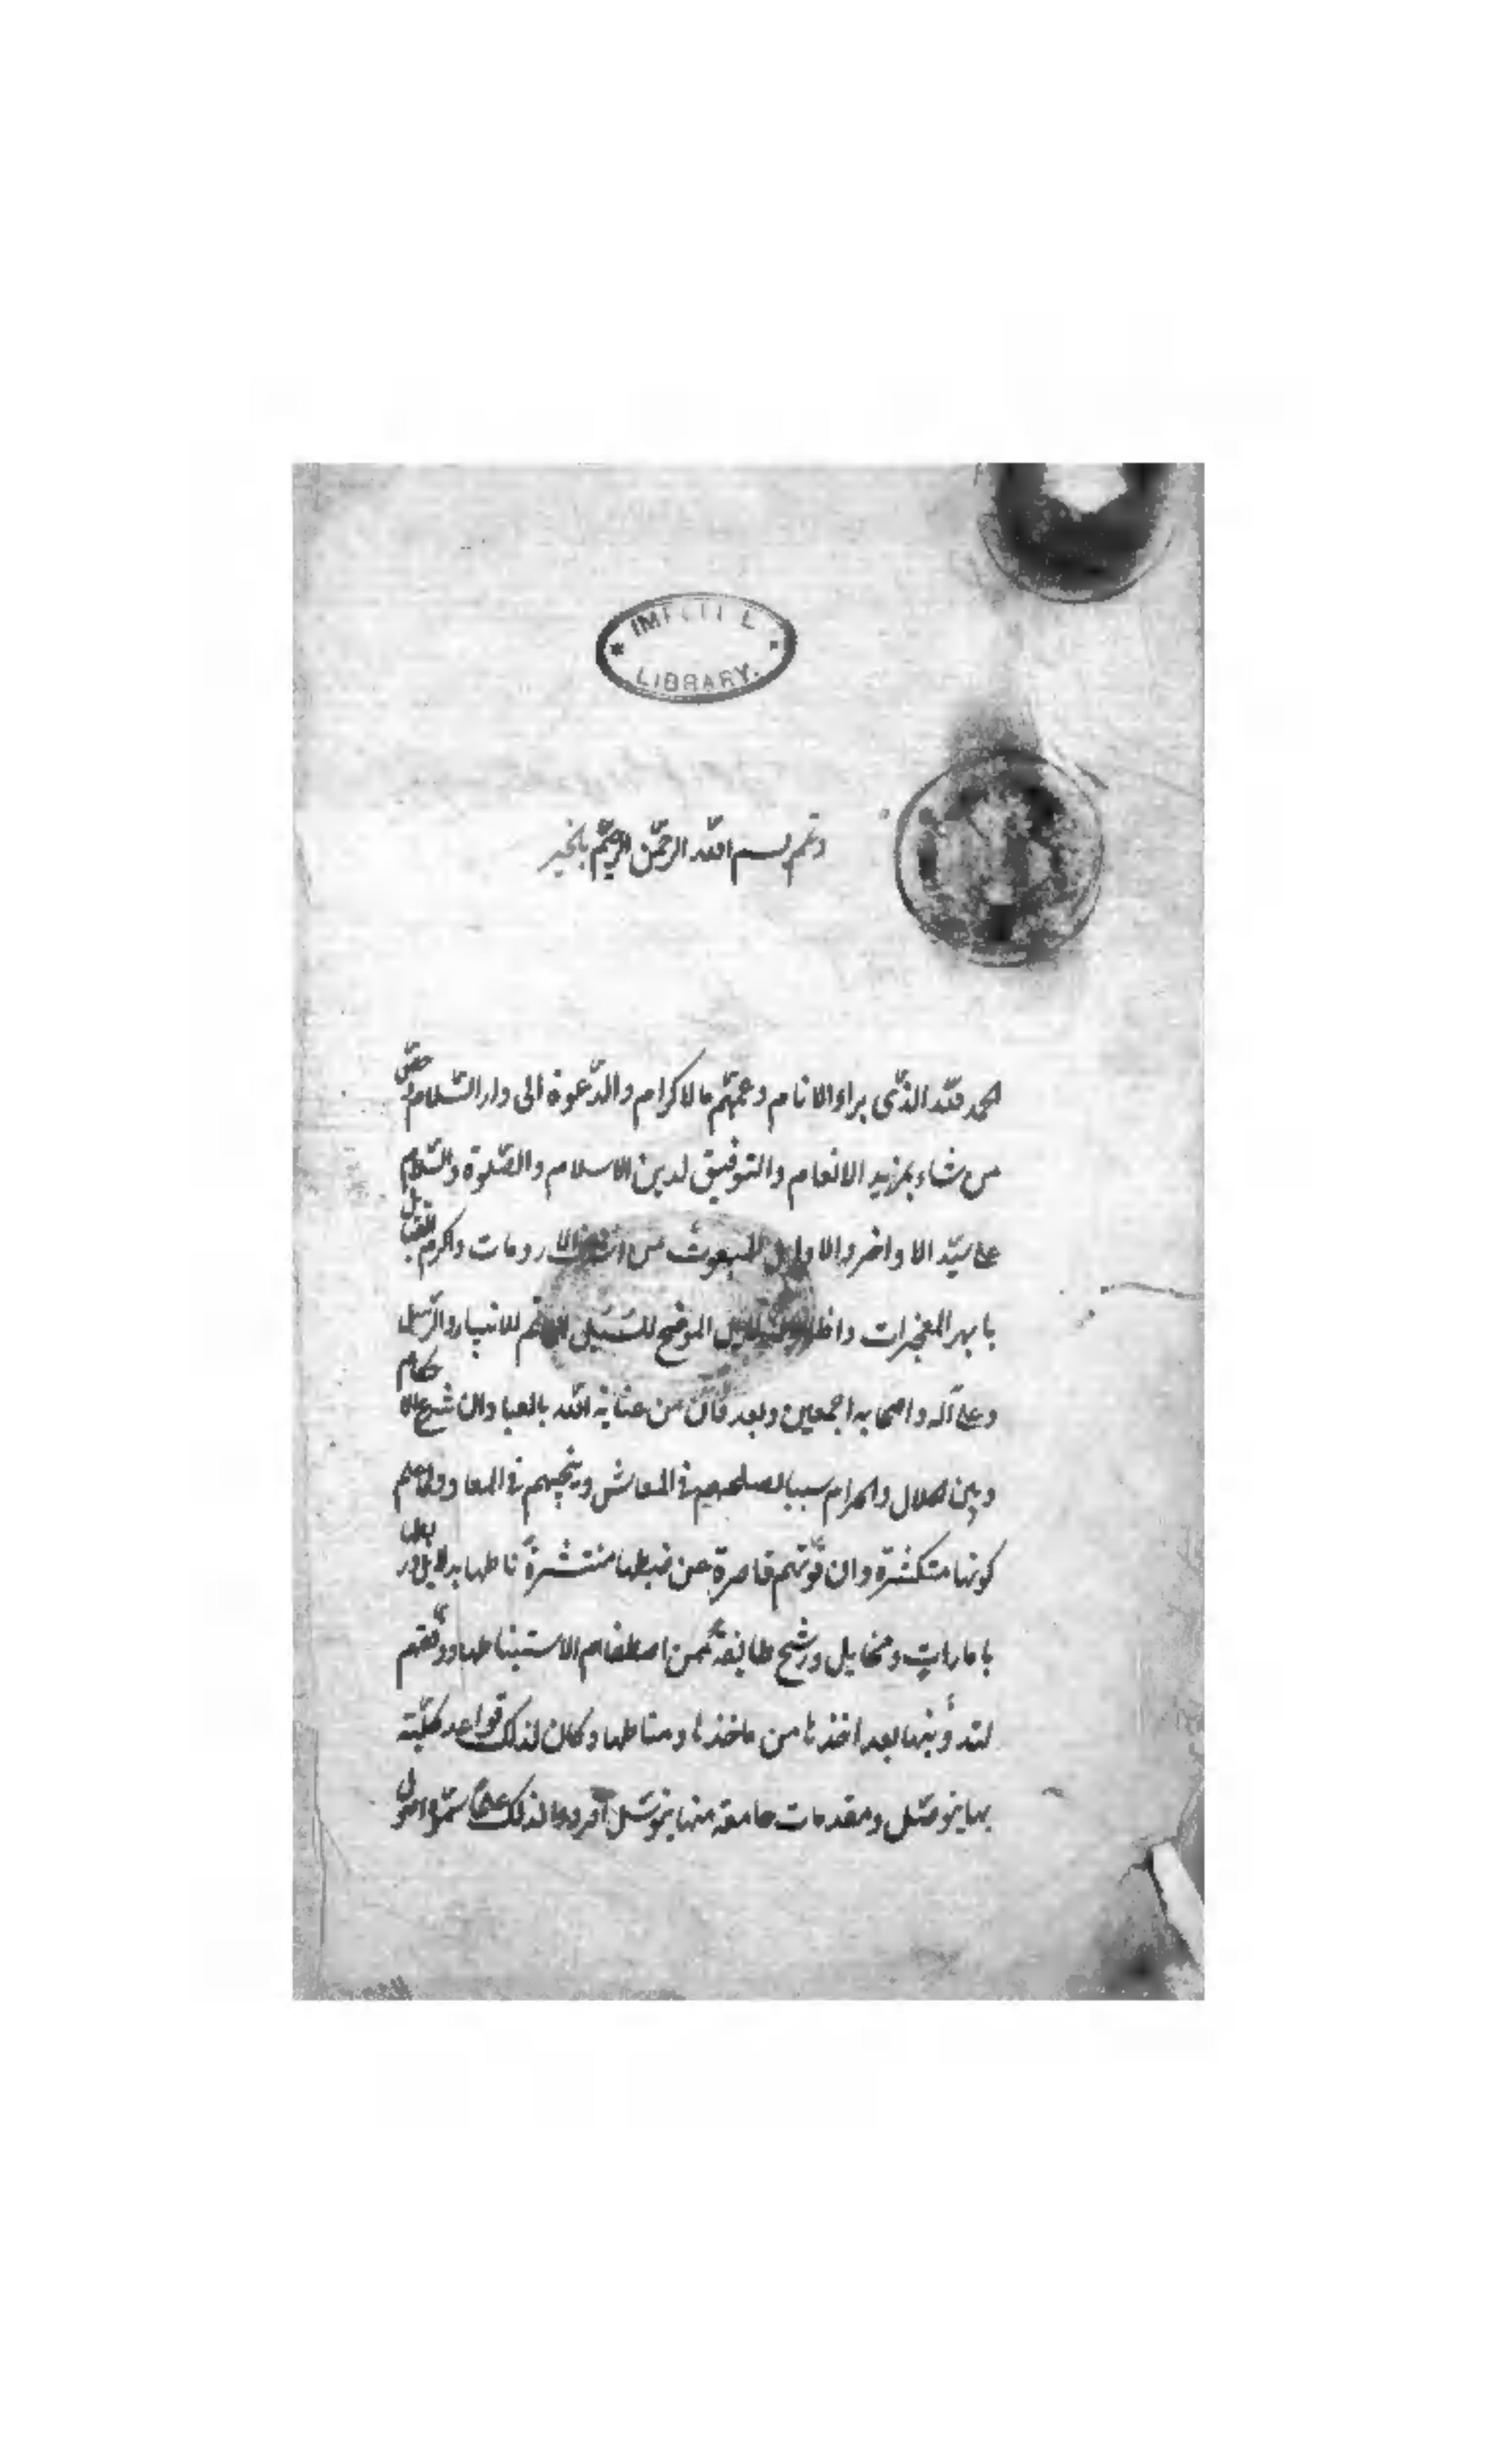 IMPERIAL
LIBRARY.
وتمم بسم الله الرحمن الرحيم بالخير
الحمد لله الذي براء الانام وعمهم بالاكرام والدعوة الى دار السلام وخص
من شاء بمزيد الانعام والتوفيق لدين الاسلام والصلوة والسلام
على سيد الاواخر والاوايل المبعوث من اشرف الارومات واكرم القبايل
بابهر المعجزات واظهر الدلايل الموضح للسبيل الخاتم للانبياء والرسل
وعلى آله واصحابه اجمعين وبعد فان من عناية الله بالعباد ان شرع الاحكام
وبين الحلال والحرام سببا لصلحهم في المعاش وينجيهم في المعاد ولما علم
كونها متكثرة وان قوتهم قاصرة عن ضبطها منتشرة ناطها بدلايل وربطها
بامارات ومخايل ورشح طايفة ممن اصطفاهم لاستنباطها ووفقهم
لتدوينها بعد اخذها من ماخذها ومناطها وكان لذلك قواعد كلية
بها يتوصل ومقدمات جامعة منها يتوسل افردوا لذلك علما سموه اصول